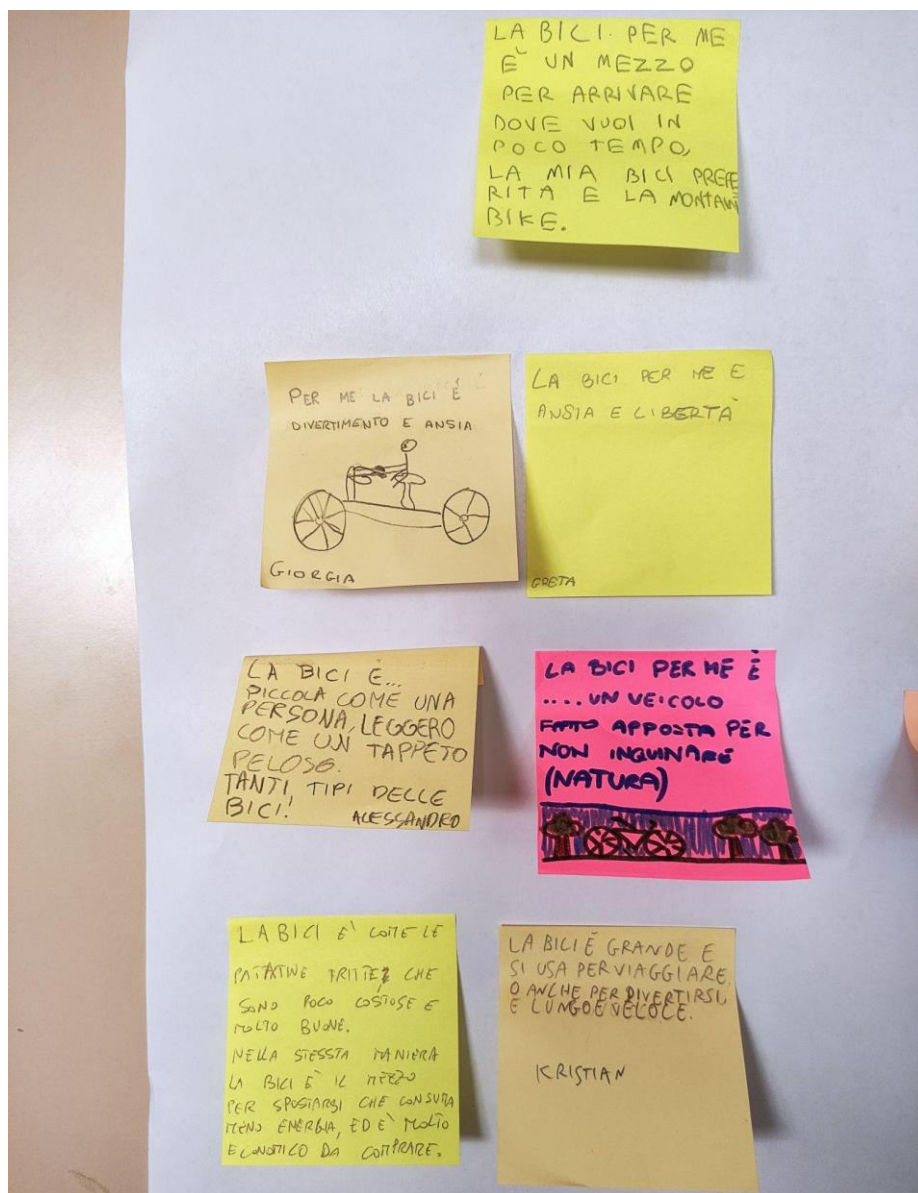 LA BICI PER ME
È UN MEZZO
PER ARRIVARE
DOVE VUOI IN
POCO TEMPO,
LA MIA BICI PREFE
RITA E LA MONTAIN
BIKE.
PER ME LA BICI É
DIVERTIMENTO E ANSIA
GIORGIA
LA BICI PER ME E
ANSIA E LIBERTÀ
GRETA
LA BICI É...
PICCOLA COME UNA
PERSONA, LEGGERO
COME UN TAPPETO
PELOSO.
TANTI, TIPI DELLE
BICI!
ALESSANDRO
LA BICI PER ME È
.... UN VEICOLO
FATTO APPOSTA PER
NON INQUINARE
(NATURA)
LA BICI E' COME LE
PATATINE FRITTE, CHE
SONO POCO COSTOSE E
MOLTO BUONE.
NELLA STESSTA MANIERA
LA BICI E' IL MEZZO
PER SPOSTARSI CHE CONSUMA
MENO ENERGIA, ED E' MOLTO
ECONOMICO DA COMPRARE.
LA BICI É GRANDE E
SI USA PER VIAGGIARE,
O ANCHE PER DIVERTIRSI,
E LUNGO E VELOCE.
KRISTIAN